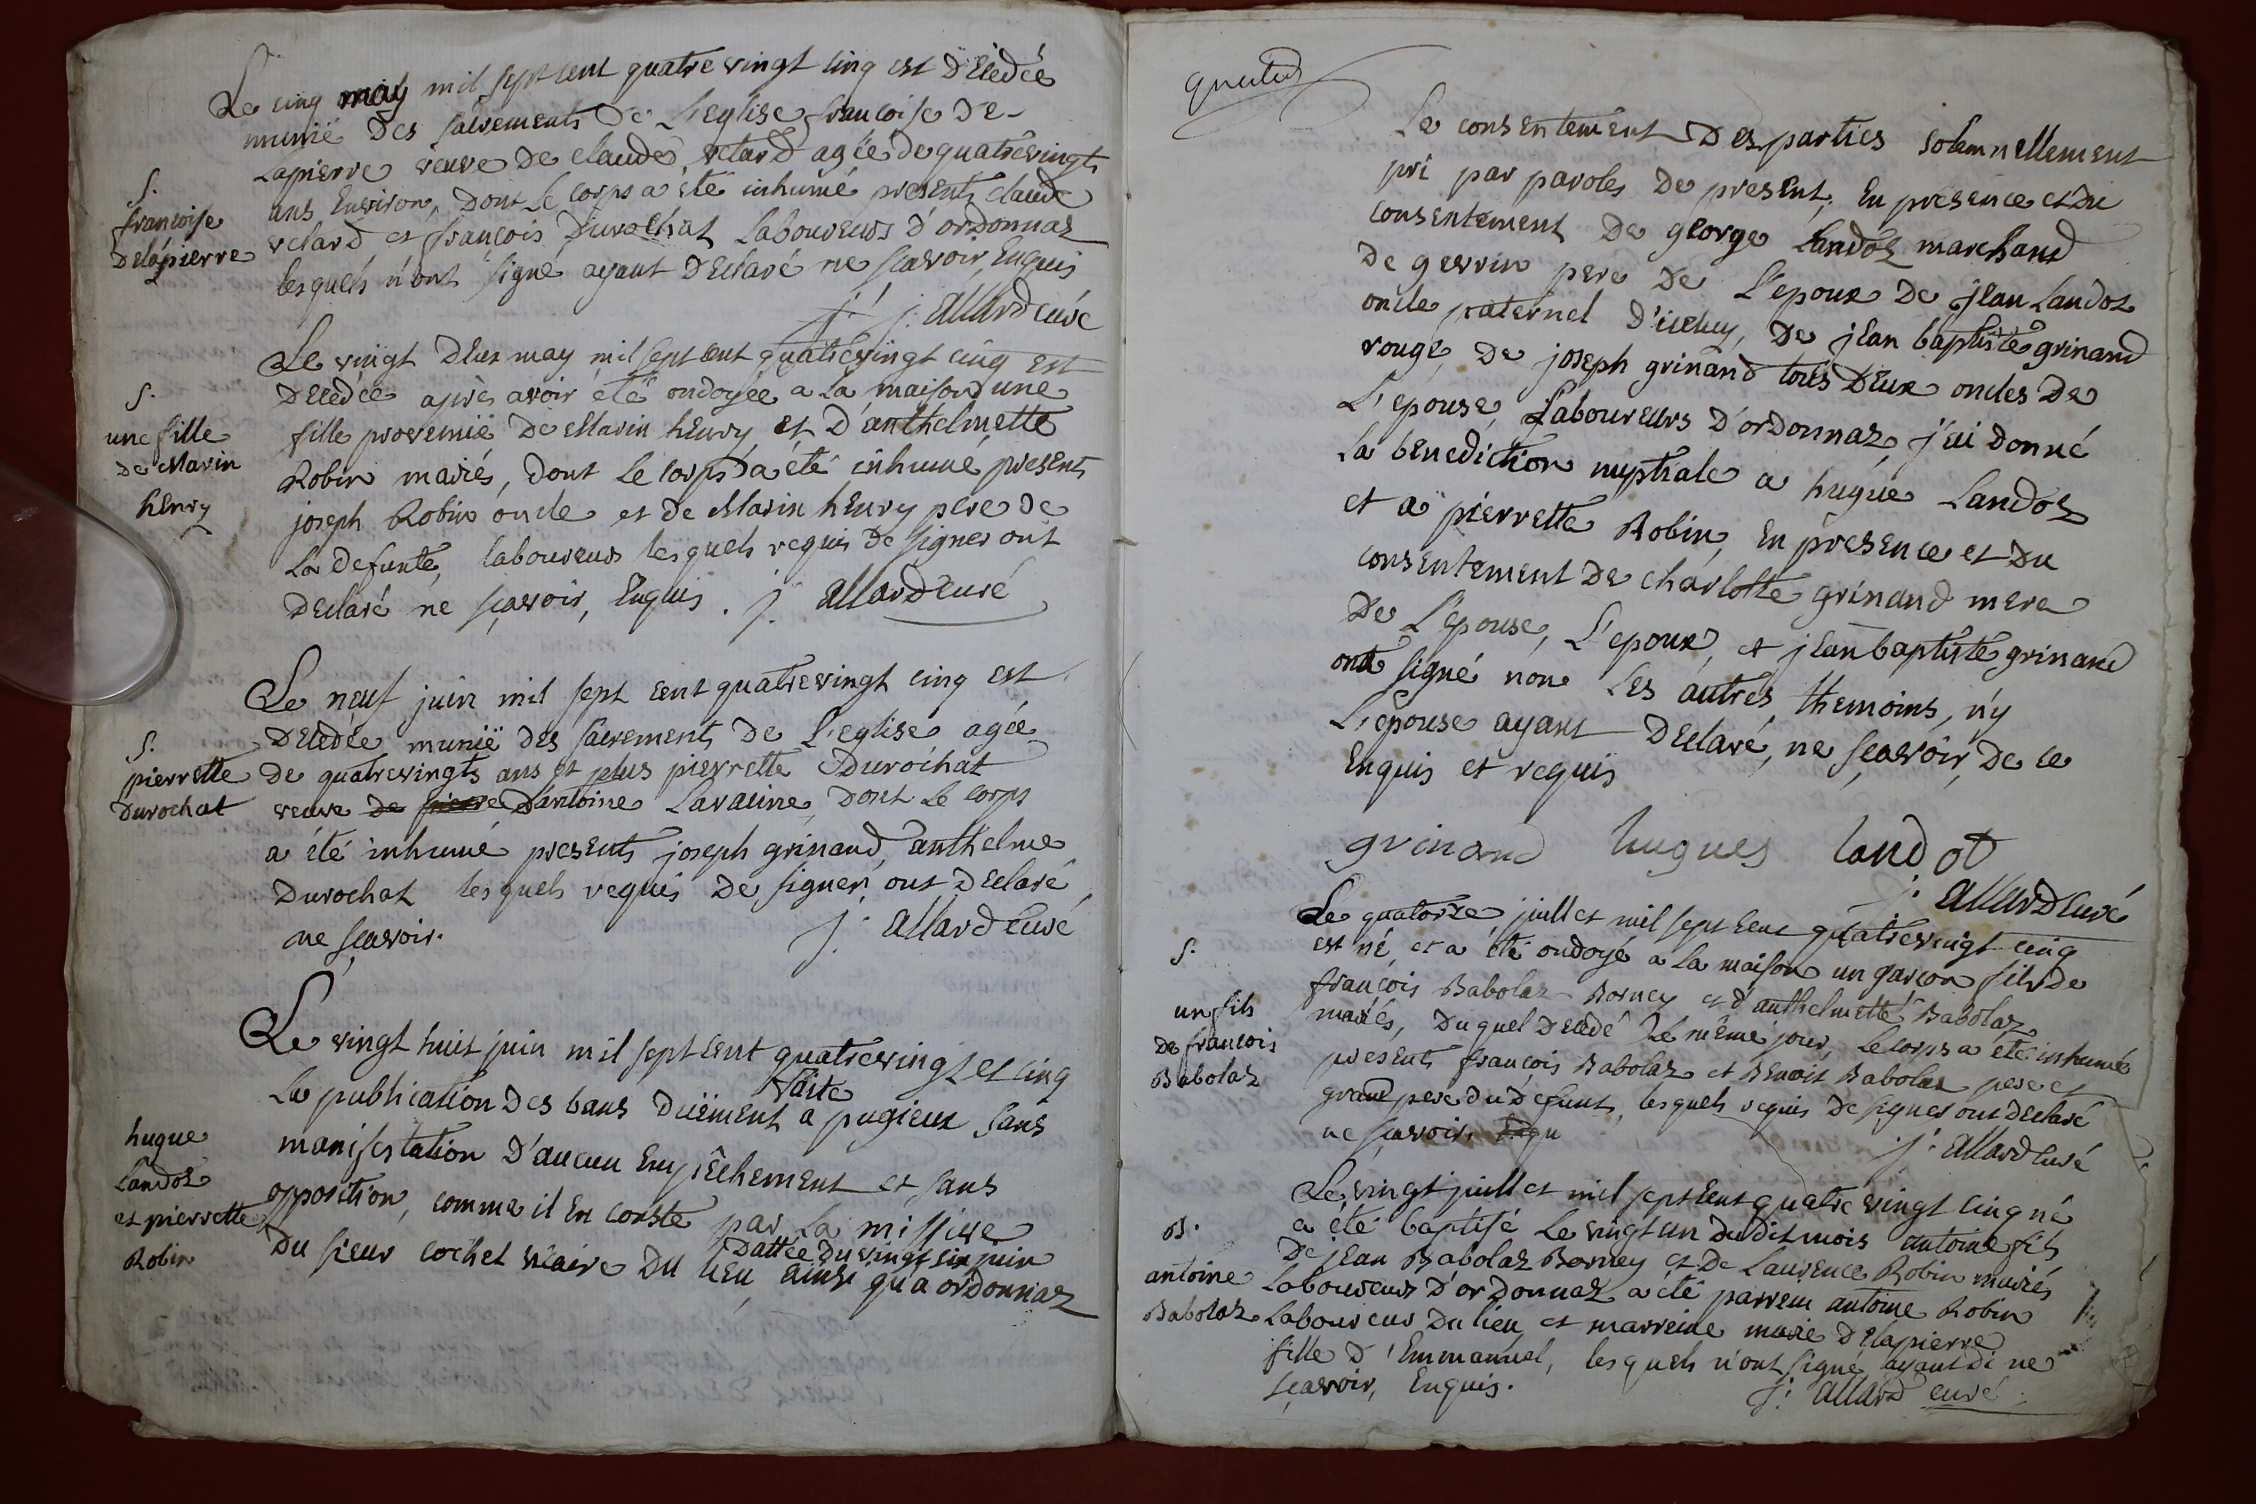 Le cinq may mil sept cent quatre vingt cinq est décédée
munië des sacrements de L'eglise françoise de-
Lapierre veuve de claude velard agée de quatre vingts
ans Environ, dont le corps a été inhumé presents claude
velard et françois Durochat Laboureurs d'ordonnaz
lesquels n'ont signé ayant Declaré ne sçavoir Enquis
j. allard curé
S.
françoise
Delapierre
Le vingt Deux may mil sept cent quatre vingt cinq est
Décédée après avoir été ondoyée a la maison une
fille provenuë de Marin henry et D'anthelmette
Robin mariés, dont le corps a été inhumé presents
joseph Robin oncle et de Marin henry pere de
La defunte, laboureurs lesquels requis de signer ont
Declaré ne sçavoir, Enquis. j. allard curé
S.
une fille
de Marin
henry
Le neuf juin mil sept cent quatre vingt cinq est
Décédée munië des sacrements de L'eglise agée
de quatre vingts ans et plus pierrette Durochat
veuve de pierre D'antoine Lavatine, dont le corps
a été inhumé presents joseph grinand, anthelme
Durochat lesquels requis de signer ont Declaré
ne sçavoir. j. allard curé
S.
pierrette
Durochat
Le vingt huit juin mil sept cent quatre vingt et cinq
La publication des bans duëment faite a pugieux sans
manifestation d'aucun Empêchement et sans
opposition, comme il En conste par la missive
Du sieur cochet vicaire Du lieu Dattée du vingt six juin ainsi qu'a ordonnaz
hugue
Landoz
et pierrette
Robin
Le consentement Des parties solemnellement
pri par paroles De present, En présence et du
consentement De george Landoz marchand
De gevrin pere De L'epoux De jean Landoz
oncle paternel D'iceluy, De jean baptiste grinand
rouge, De joseph grinand tous Deux oncles De
L'epouse, Laboureurs D'ordonnaz, j'ai donné
La benediction nuptiale a hugue Landoz
et a pierrette Robin, En présence et Du
consentement De charlotte grinand mere
De L'epouse, L'epoux, et jean baptiste grinand
ont signé non Les autres themoins, n'y
L'epouse ayant Declaré, ne sçavoir, De ce
Enquis et requis
grinand hugues landot
j. allard curé
Le quatorze juillet mil sept cent quatre vingt cinq
est né et a été ondoyé a la maison un garçon fils De
françois Babolaz Borney et d'anthelmette Babolaz
mariés, duquel Décédé Le même jour, Le corps a été inhumé
presents françois Babolaz et Benoit Babolaz pere et
grand pere du Defunt, lesquels requis De signer ont Declaré
ne sçavoir. Enqu
j. allard curé
S.
un fils
De françois
Babolaz
Le vingt juillet mil sept cent quatre vingt cinq né
a été baptisé Le vingt un dudit mois antoine fils
De jean Babolaz Borney et De Laurence Robin mariés
Laboureurs D'ordonnaz a été parrein antoine Robin
Laboureur Du lieu et marreine marie Delapierre
fille D'Emmanuel, lesquels n'ont signé ayant di ne
sçavoir, Enquis. j. allard curé
B.
antoine
Babolaz